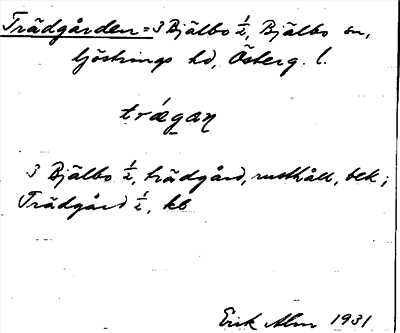 Trädgården = 3 Bjälbo 1/2, Bjälbo sn,
Göstrings hd, Österg. l.
trǽgaṇ
3 Bjälbo 1/2, trädgård, rusthåll, bek;
Trädgård 1/2, kb
Erik Alm 1931